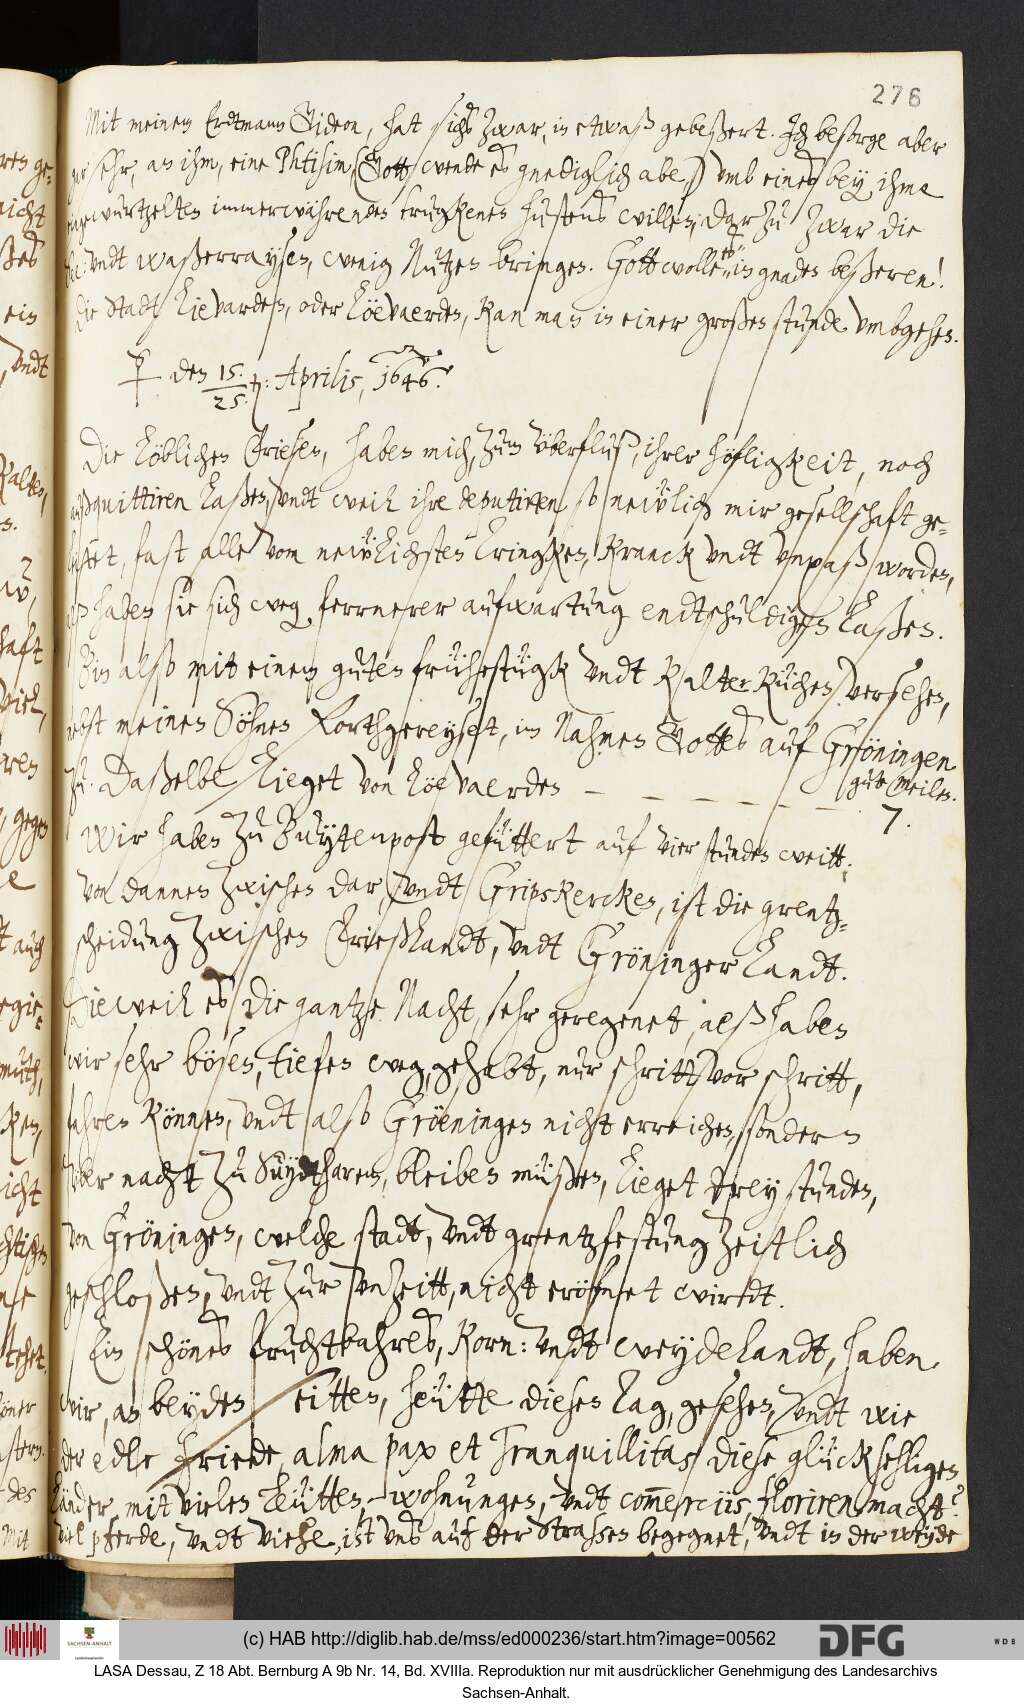 276
Mit meinem Erdtmann Gideon, hat sichs zwar, in etwaß gebeßert. Ich besorge aber
gar sehr, an ihm, eine Phtisin, (Gott wende es gnediglich abe,) umb eines bey ihme
eingewurtzelten immerwährenden truckenen hustens willen, dar zu zwar die
See: undt waßerraysen, wenig Nutzen bringen. Gott wolle es in gnaden beßeren!
Die Stadt Lievarden, oder Löevaerden, kan man in einer großen stunde umbgehen.
☿ den 15. / 25. Aprilis, 1646.
Die Löblichen Friesen, haben mich, zum überfluß, ihrer höfligkeit, noch
außquittiren laßen, undt weil ihre deputirten so neẅlich mir gesellschaft ge-
leistet, fast alle vom neẅlichsten trincken, kranck undt unpaß worden,
alß haben sie sich weg. ferrnerer aufwartung endtschuldigen laßen.
Bin also mit einem guten früihestügk undt kalter Küchen versehen,
nebst meinen Söhnen forthgereyset, in Nahmen Gottes auf Gröningen
zu. Daßelbe lieget von Löevaerden — — — — — —
gute meilen.
7.
Wir haben zu Buytenpost gefüttert auf vier stunden weitt;
Von dannen zwischen dar, undt Gripskercken, ist die grentz-
scheidung zwischen Frießlandt, undt Gröninger Landt.
Dieweil es die gantze Nacht, sehr geregenet, alß haben
wir sehr bösen, tiefen weg, gehabt, nur schritt vor schritt,
fahren können, undt also Gröeningen nicht erreichen, sondern
über nacht zu Suydtharen, bleiben müßen, lieget drey stunden,
von Gröningen, welche stadt, undt grentzfestung zeitlich
geschloßen, undt zur unzeitt, nicht eröfnet wirdt.
Ein schönes fruchtbahres, Korn: undt weydelandt, haben
wir, an beyden seitten, heütte diesen tag, gesehen, undt wie
der edle friede, alma pax et tranquillitas diese glückseligen
Länder, mit vielen Leütten, wohnungen, undt com̄erciis, floriren macht?
viel pferde, undt viehe, ist uns auf der Strassen begegnet, undt in der weyde
(c) HAB http://diglib.hab.de/mss/ed000236/start.htm?image=00562
SACHSEN-ANHALT
DFG
WDB
LASA Dessau, Z 18 Abt. Bernburg A 9b Nr. 14, Bd. XVIIIa. Reproduktion nur mit ausdrücklicher Genehmigung des Landesarchivs
Sachsen-Anhalt.